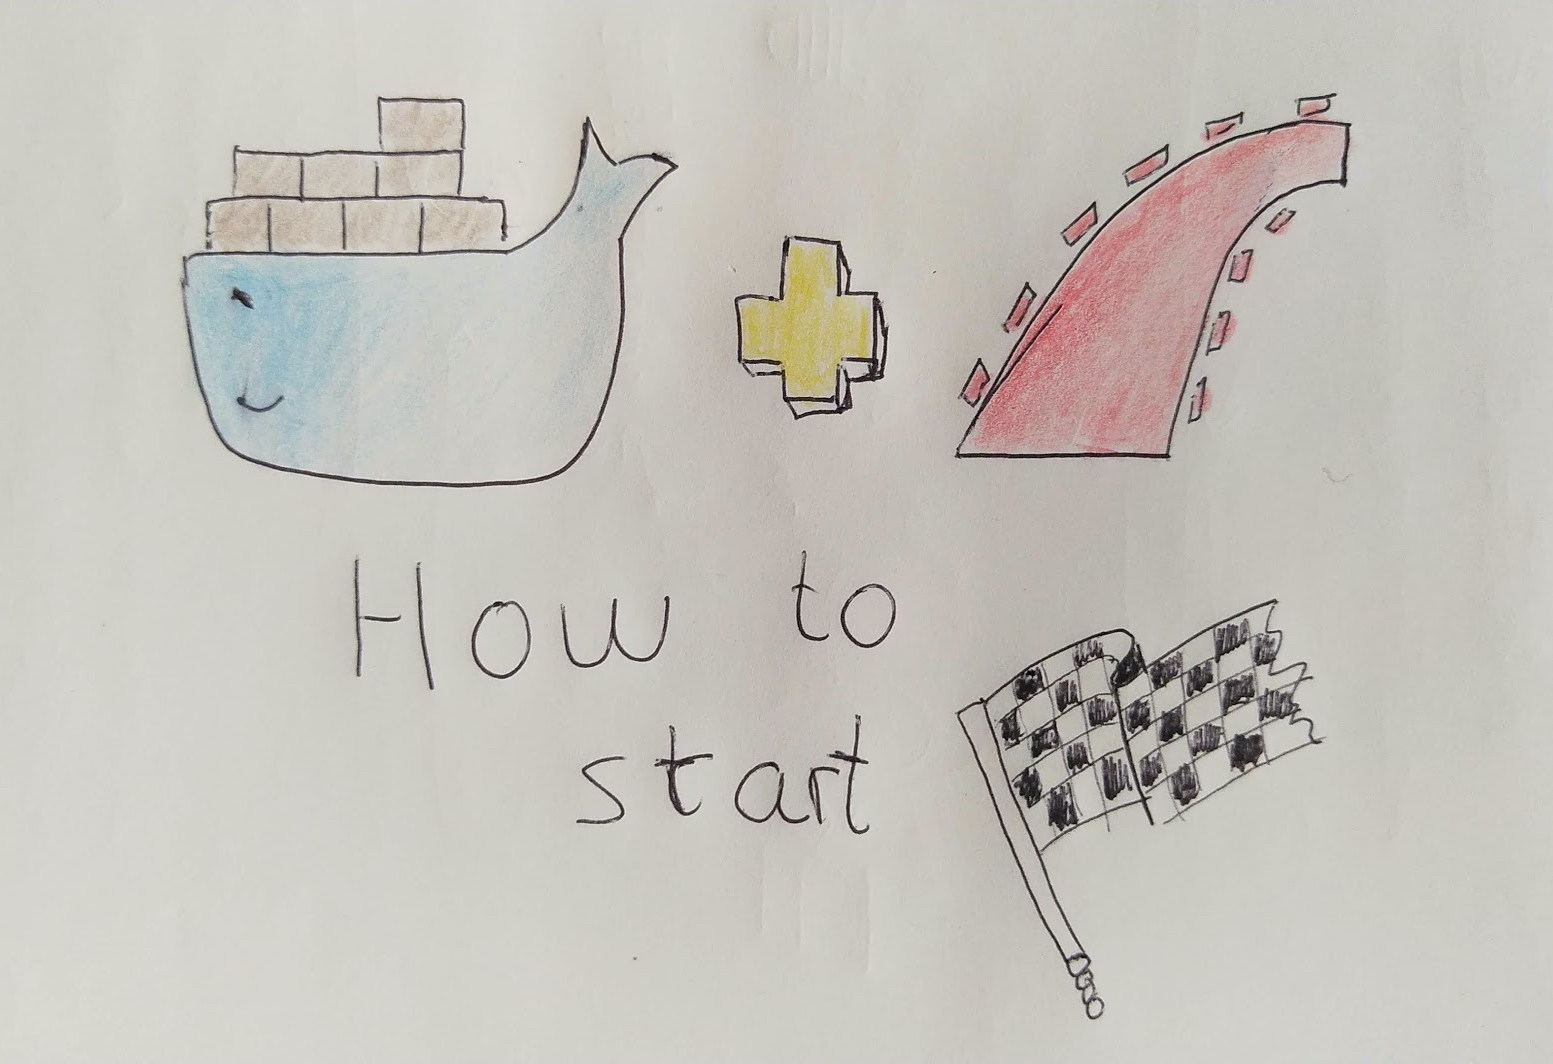 How to
start